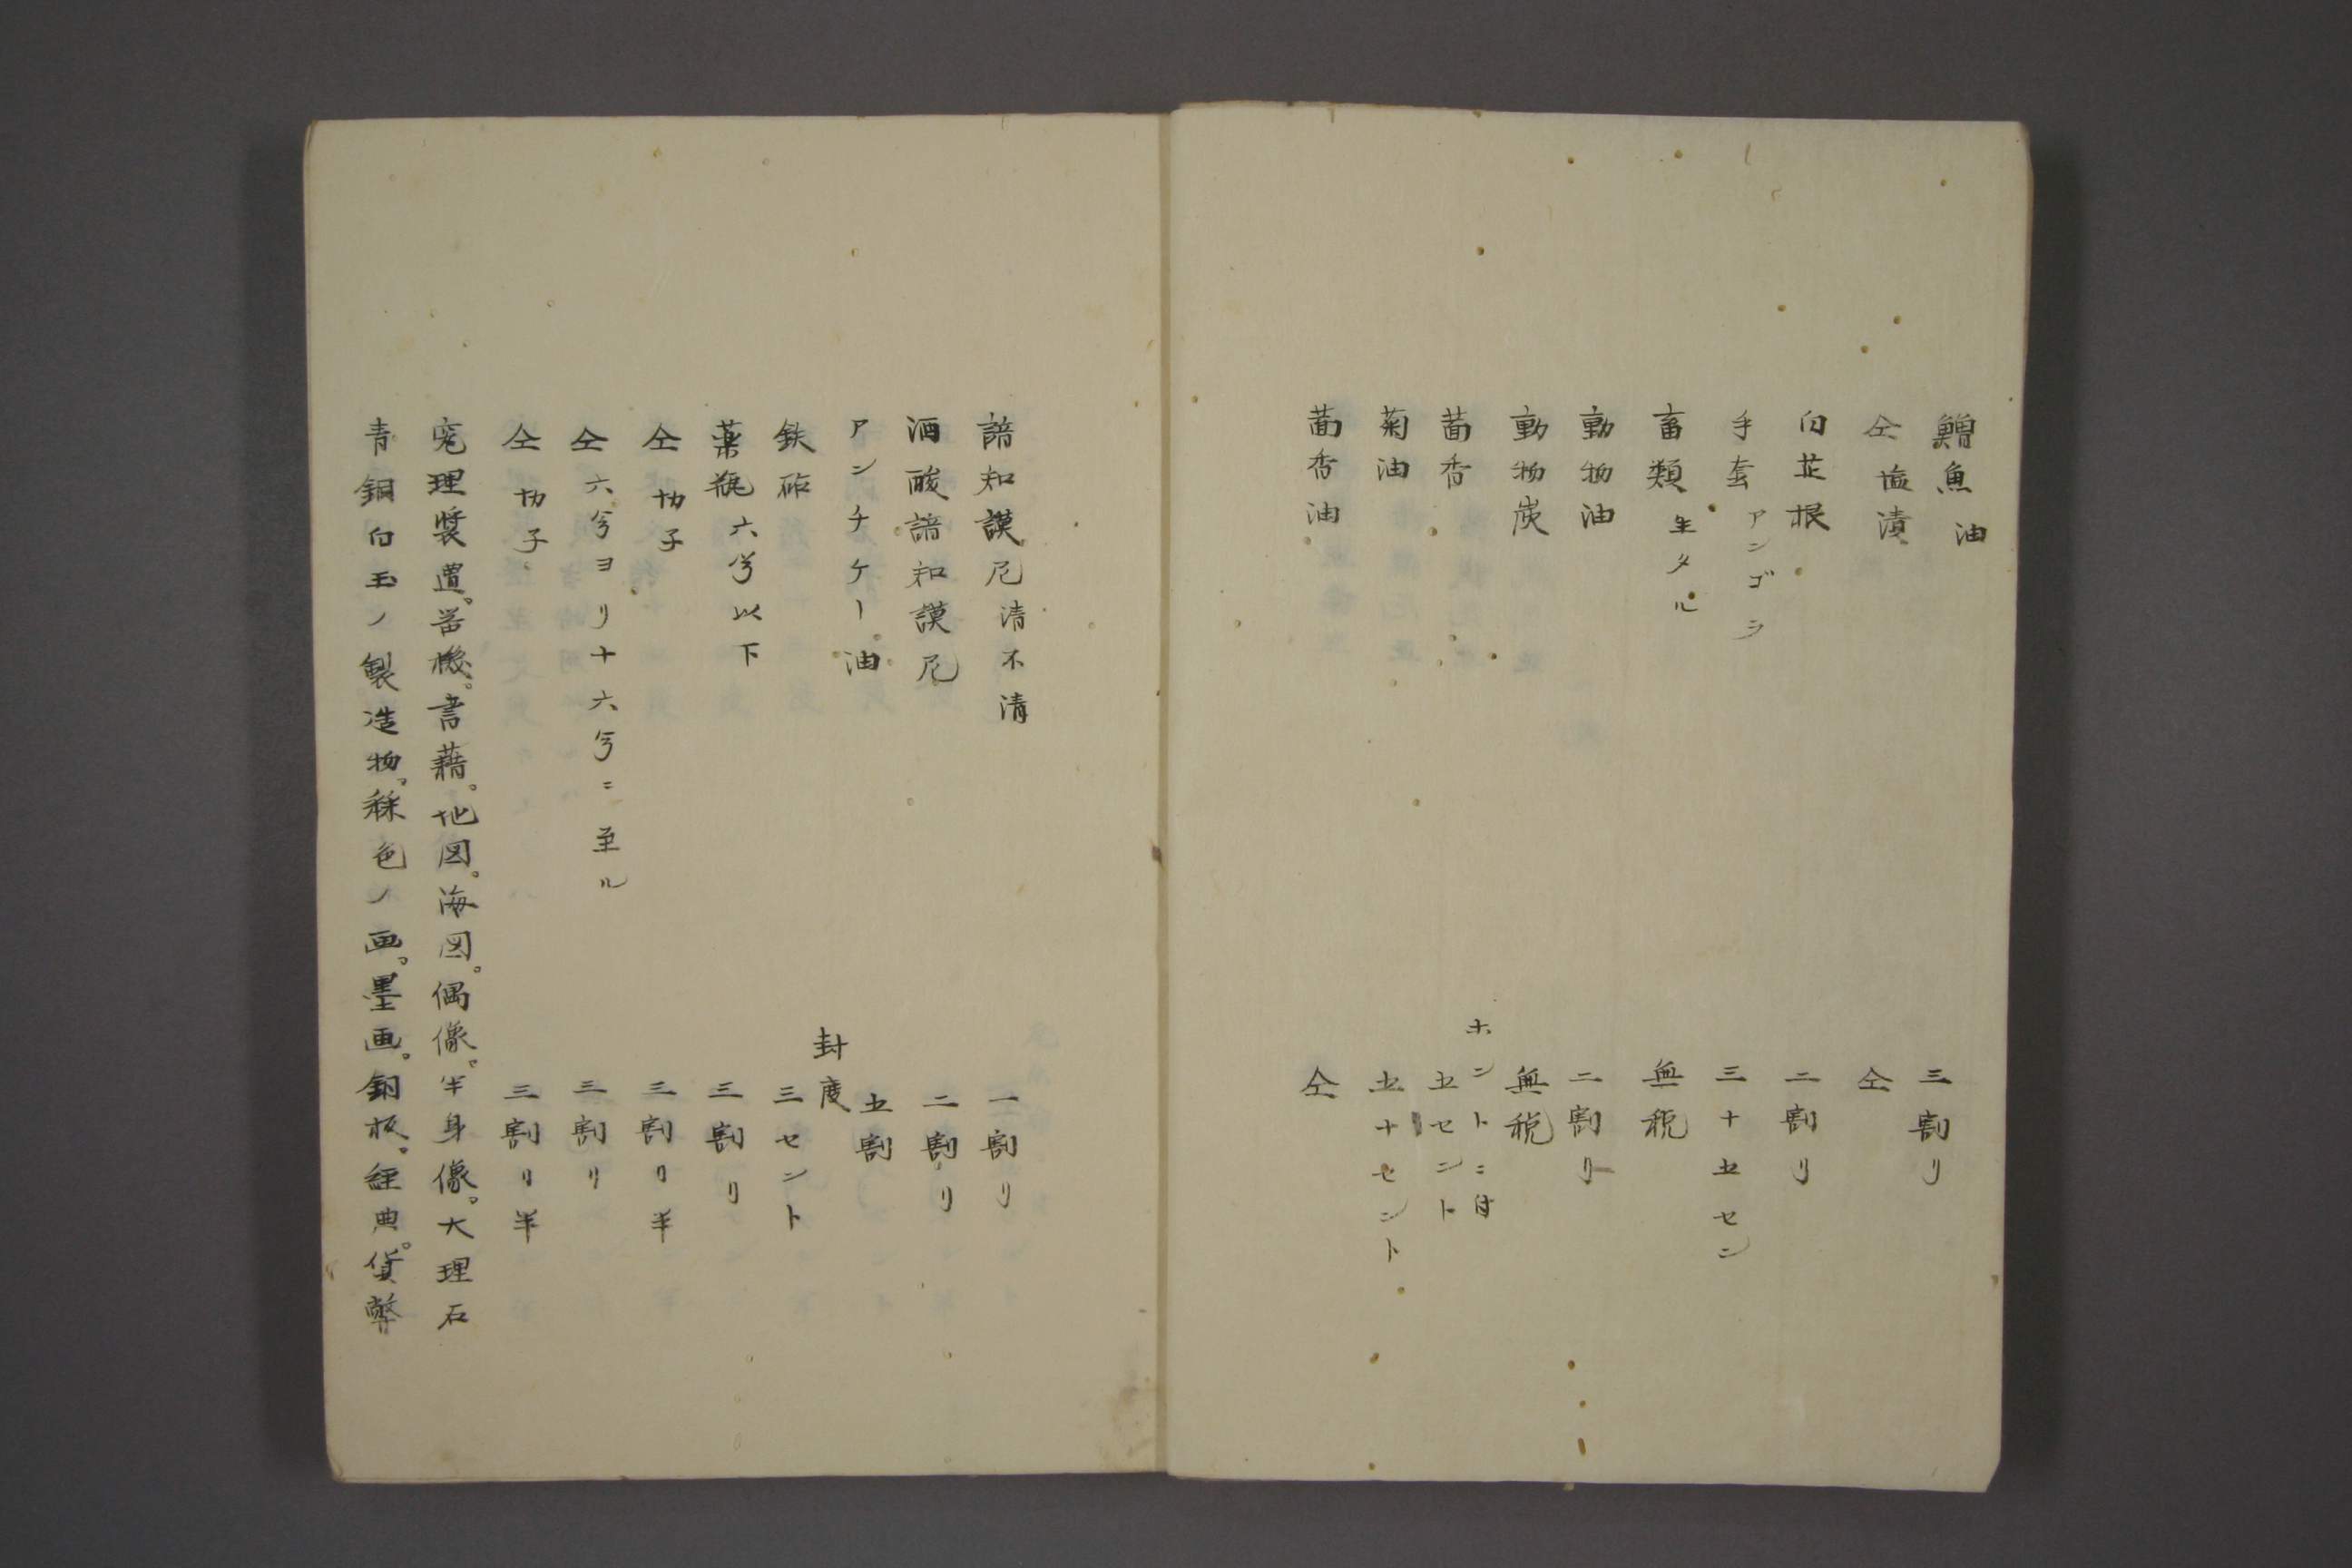 鰽魚油 三割リ
仝塩漬 仝
白芷根 二割リ
手套アンゴラ 三十五セン
畜類生タル 無税
動物油 二割リ
動物炭 無税
茴香 ホントニ付五セント
菊油 五十セント
茴香油 仝
諳知謨尼清不清 一割リ
酒酸諳知謨尼 二割リ
アンチケー油 五割
鉄砧 封度三セント
薬瓶六兮以下 三割リ
仝切子 三割リ半
仝六兮ヨリ十六兮ニ至ル 三割リ
仝切子 三割リ半
究理裝置。器機。書藉。地図。海図。偶像。半身像。大理石
青銅白玉ノ製造物。稱色ノ画。墨画。銅板。経典。貨幣